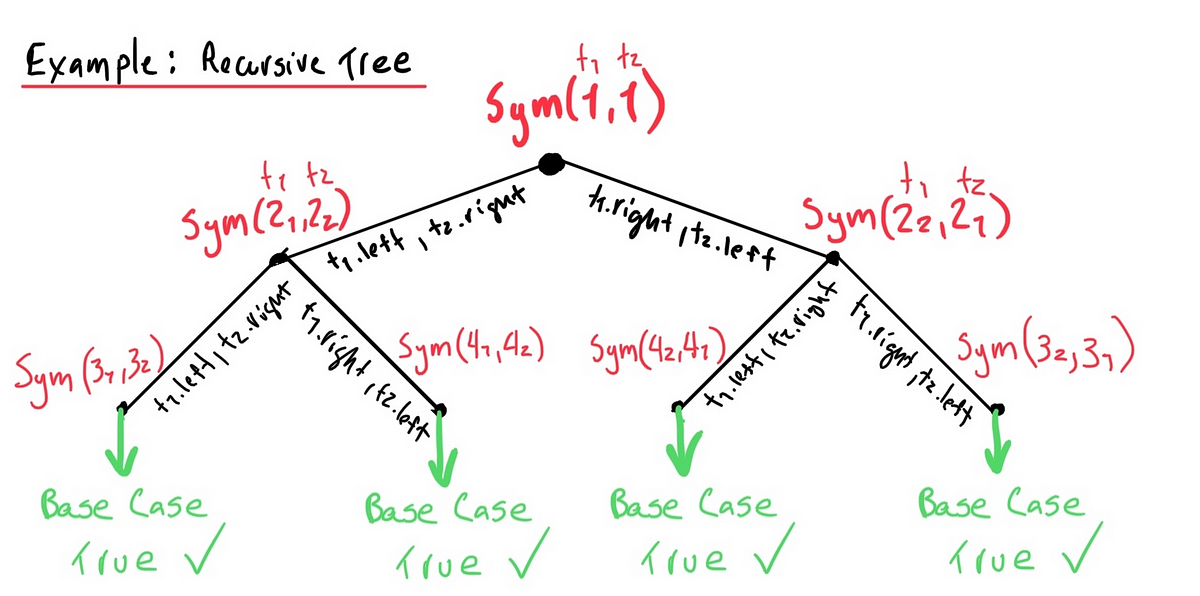 Example: Recursive Tree
t₁ t₂
Sym(1,1)
t₁ t₂
Sym(2₁,2₂)
t₁ t₂
Sym(2₂,2₁)
t₁.left, t₂.right
t₁.right, t₂.left
Sym(3₁,3₂)
t₁.left, t₂.right
t₁.right, t₂.left
Sym(4₁,4₂)
Sym(4₂,4₁)
t₁.left, t₂.right
t₁.right, t₂.left
Sym(3₂,3₁)
Base Case
True ✓
Base Case
True ✓
Base Case
True ✓
Base Case
True ✓